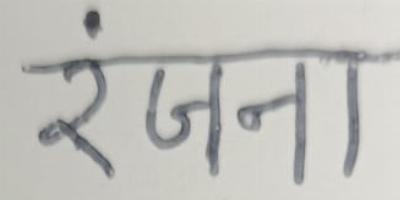 रंजना